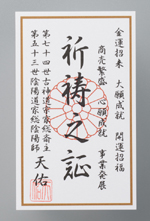 金運招来　大願成就　開運招福
商売繁盛　心願成就　事業発展
祈祷之証
第七十四世古神道宗家総陰陽師
第五十三世陰陽道家総陰陽師
天佑